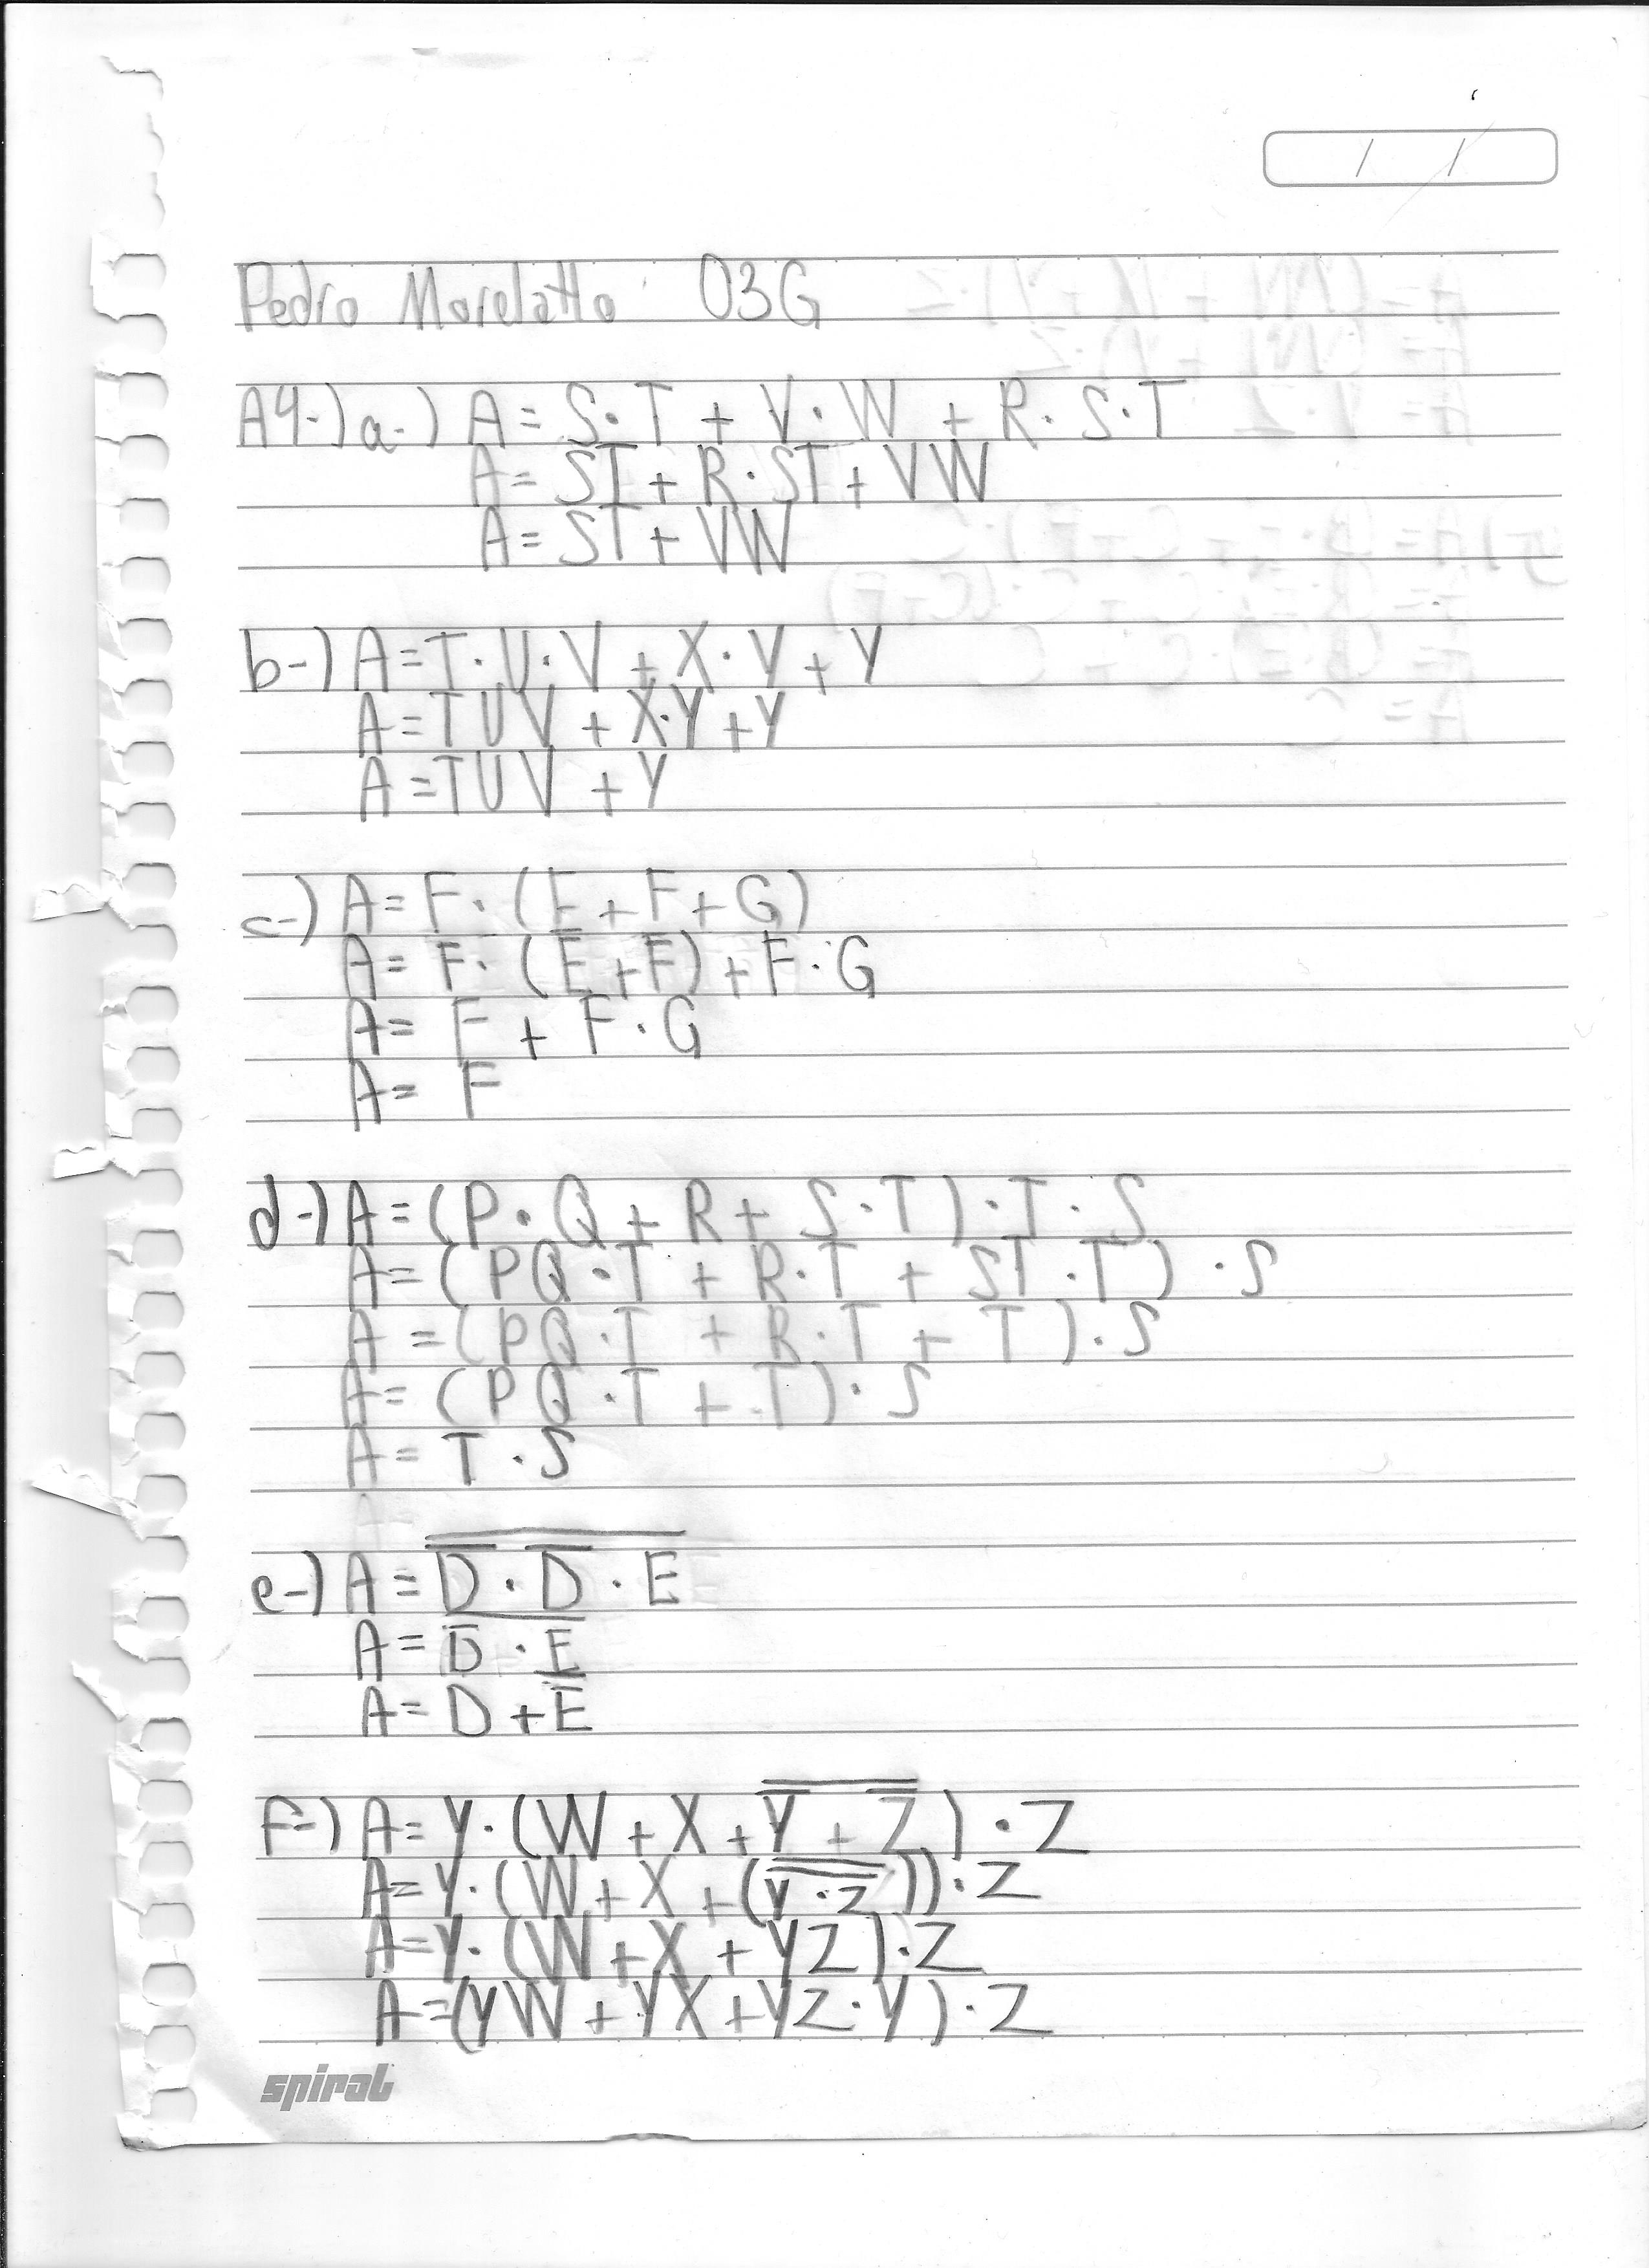 / /
Pedro Morelatto 03G
A4-) a-) A = S·T + V·W + R·S·T
A = ST + R·ST + VW
A = ST + VW
b-) A = T·U·V + X·Y + Y
A = TUV + X·Y + Y
A = TUV + Y
c-) A = F·(E + F + G)
A = F·(E + F) + F·G
A = F + F·G
A = F
d-) A = (P·Q + R + S·T)·T·S
A = (PQ·T + R·T + ST·T)·S
A = (PQ·T + R·T + T)·S
A = (PQ·T + T)·S
A = T·S
e-) A = \overline{\overline{D}·\overline{D}·E}
A = \overline{\overline{D}·E}
A = D + \overline{E}
f-) A = Y·(W + X + \overline{\overline{Y} + \overline{Z}})·Z
A = Y·(W + X + (\overline{\overline{Y·Z}}))·Z
A = Y·(W + X + YZ)·Z
A = (YW + YX + YZ·Y)·Z
spiral